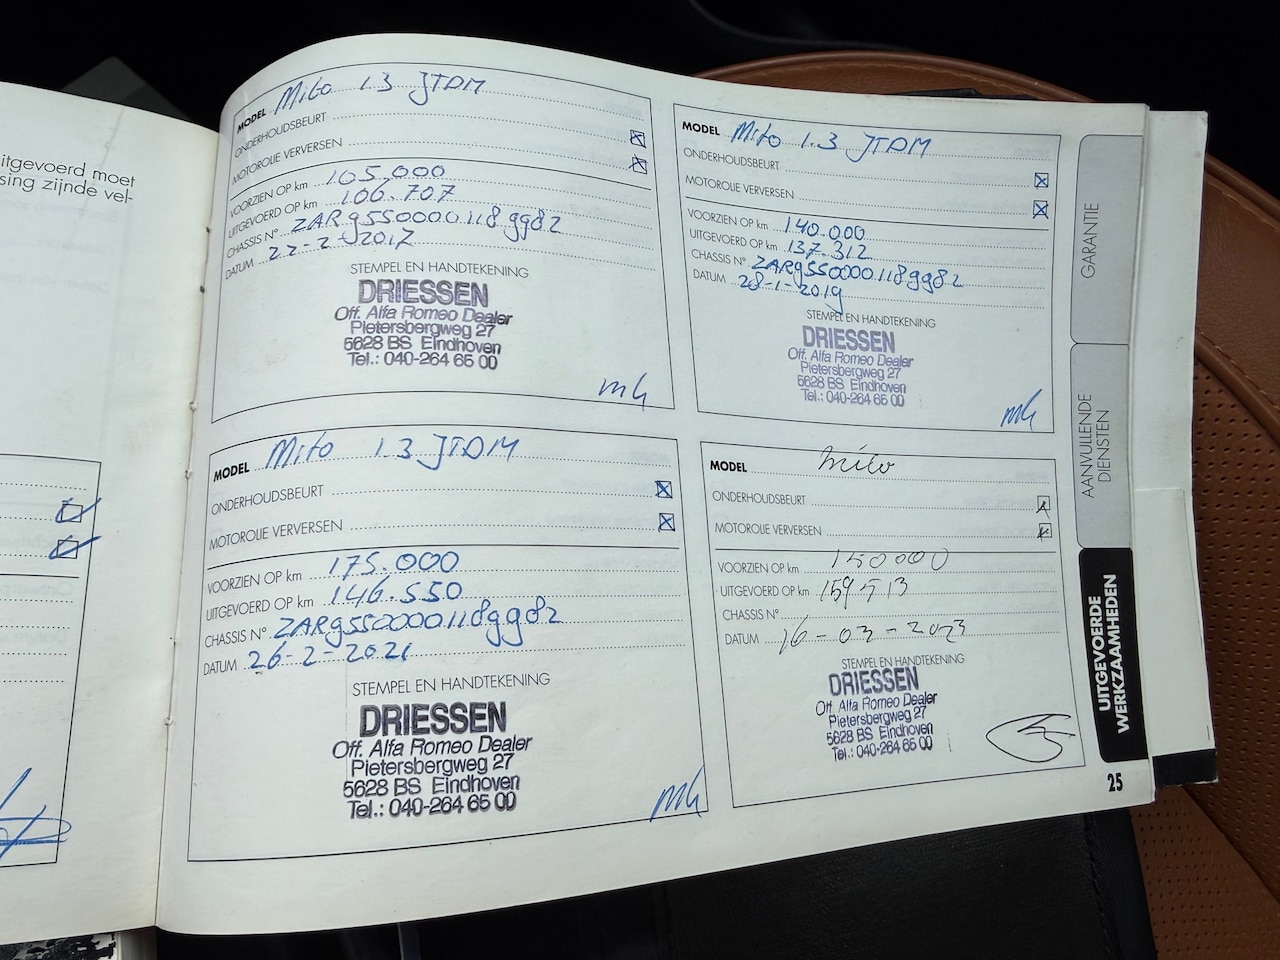 itgevoerd moet
sing zijnde vel-
MODEL Mito 1.3 JTDM
ONDERHOUDSBEURT
MOTOROLIE VERVERSEN
VOORZIEN OP km 105.000
UITGEVOERD OP km 106.707
CHASSIS N° ZAR95500001189982
DATUM 22-2-2017
STEMPEL EN HANDTEKENING
DRIESSEN
Off. Alfa Romeo Dealer
Pietersbergweg 27
5628 BS Eindhoven
Tel.: 040-264 65 00
MODEL Mito 1.3 JTDM
ONDERHOUDSBEURT
MOTOROLIE VERVERSEN
VOORZIEN OP km 140.000
UITGEVOERD OP km 137.312
CHASSIS N° ZAR95500001189982
DATUM 28-1-2019
STEMPEL EN HANDTEKENING
DRIESSEN
Off. Alfa Romeo Dealer
Pietersbergweg 27
5628 BS Eindhoven
Tel.: 040-264 65 00
MODEL Mito 1.3 JTDM
ONDERHOUDSBEURT
MOTOROLIE VERVERSEN
VOORZIEN OP km 175.000
UITGEVOERD OP km 146.550
CHASSIS N° ZAR95500001189982
DATUM 26-2-2021
STEMPEL EN HANDTEKENING
DRIESSEN
Off. Alfa Romeo Dealer
Pietersbergweg 27
5628 BS Eindhoven
Tel.: 040-264 65 00
MODEL Mito
ONDERHOUDSBEURT
MOTOROLIE VERVERSEN
VOORZIEN OP km 150000
UITGEVOERD OP km 159513
CHASSIS N°
DATUM 16-03-2023
STEMPEL EN HANDTEKENING
DRIESSEN
Off. Alfa Romeo Dealer
Pietersbergweg 27
5628 BS Eindhoven
Tel.: 040-264 65 00
GARANTIE
AANVULLENDE
DIENSTEN
UITGEVOERDE
WERKZAAMHEDEN
25